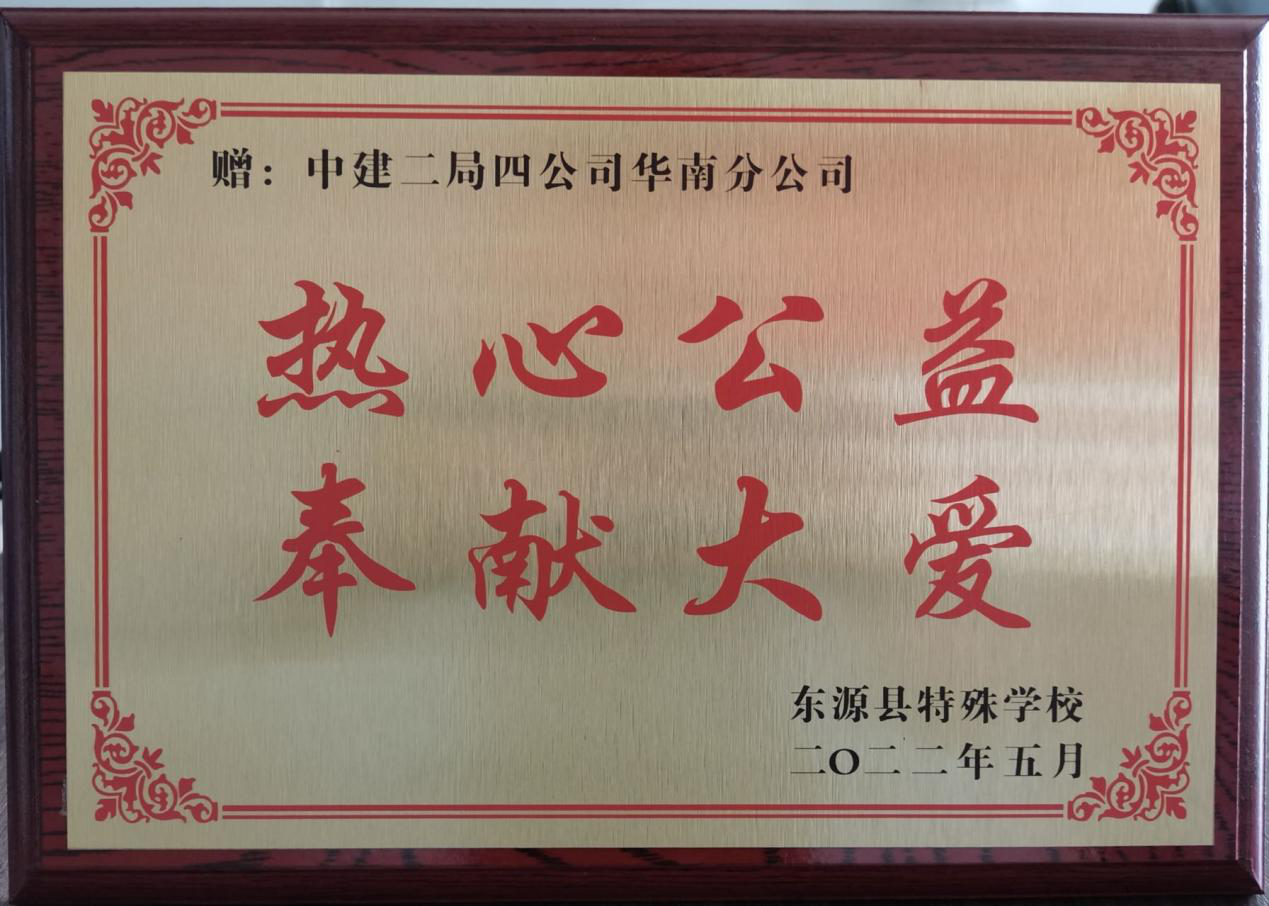 赠：中建二局四公司华南分公司
热心公益
奉献大爱
东源县特殊学校
二〇二二年五月